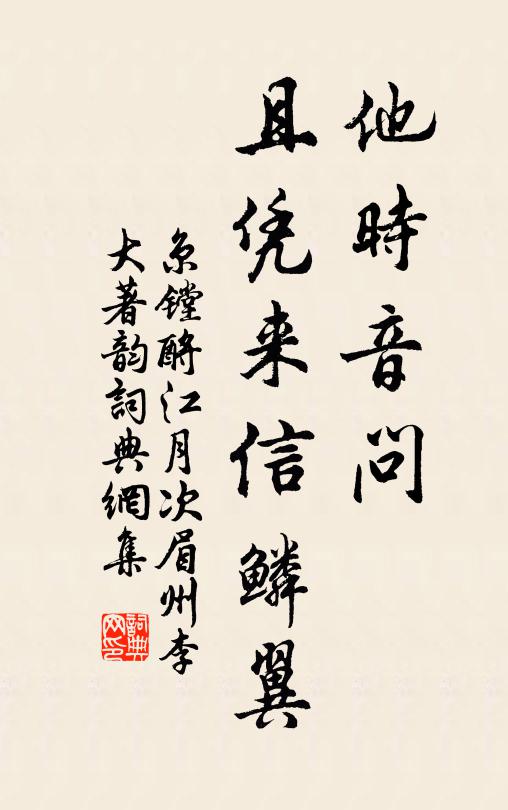 他時音問
且凭来信鱗翼
京鏜酹江月次眉州李
大著韵詞典網集
詞典网印